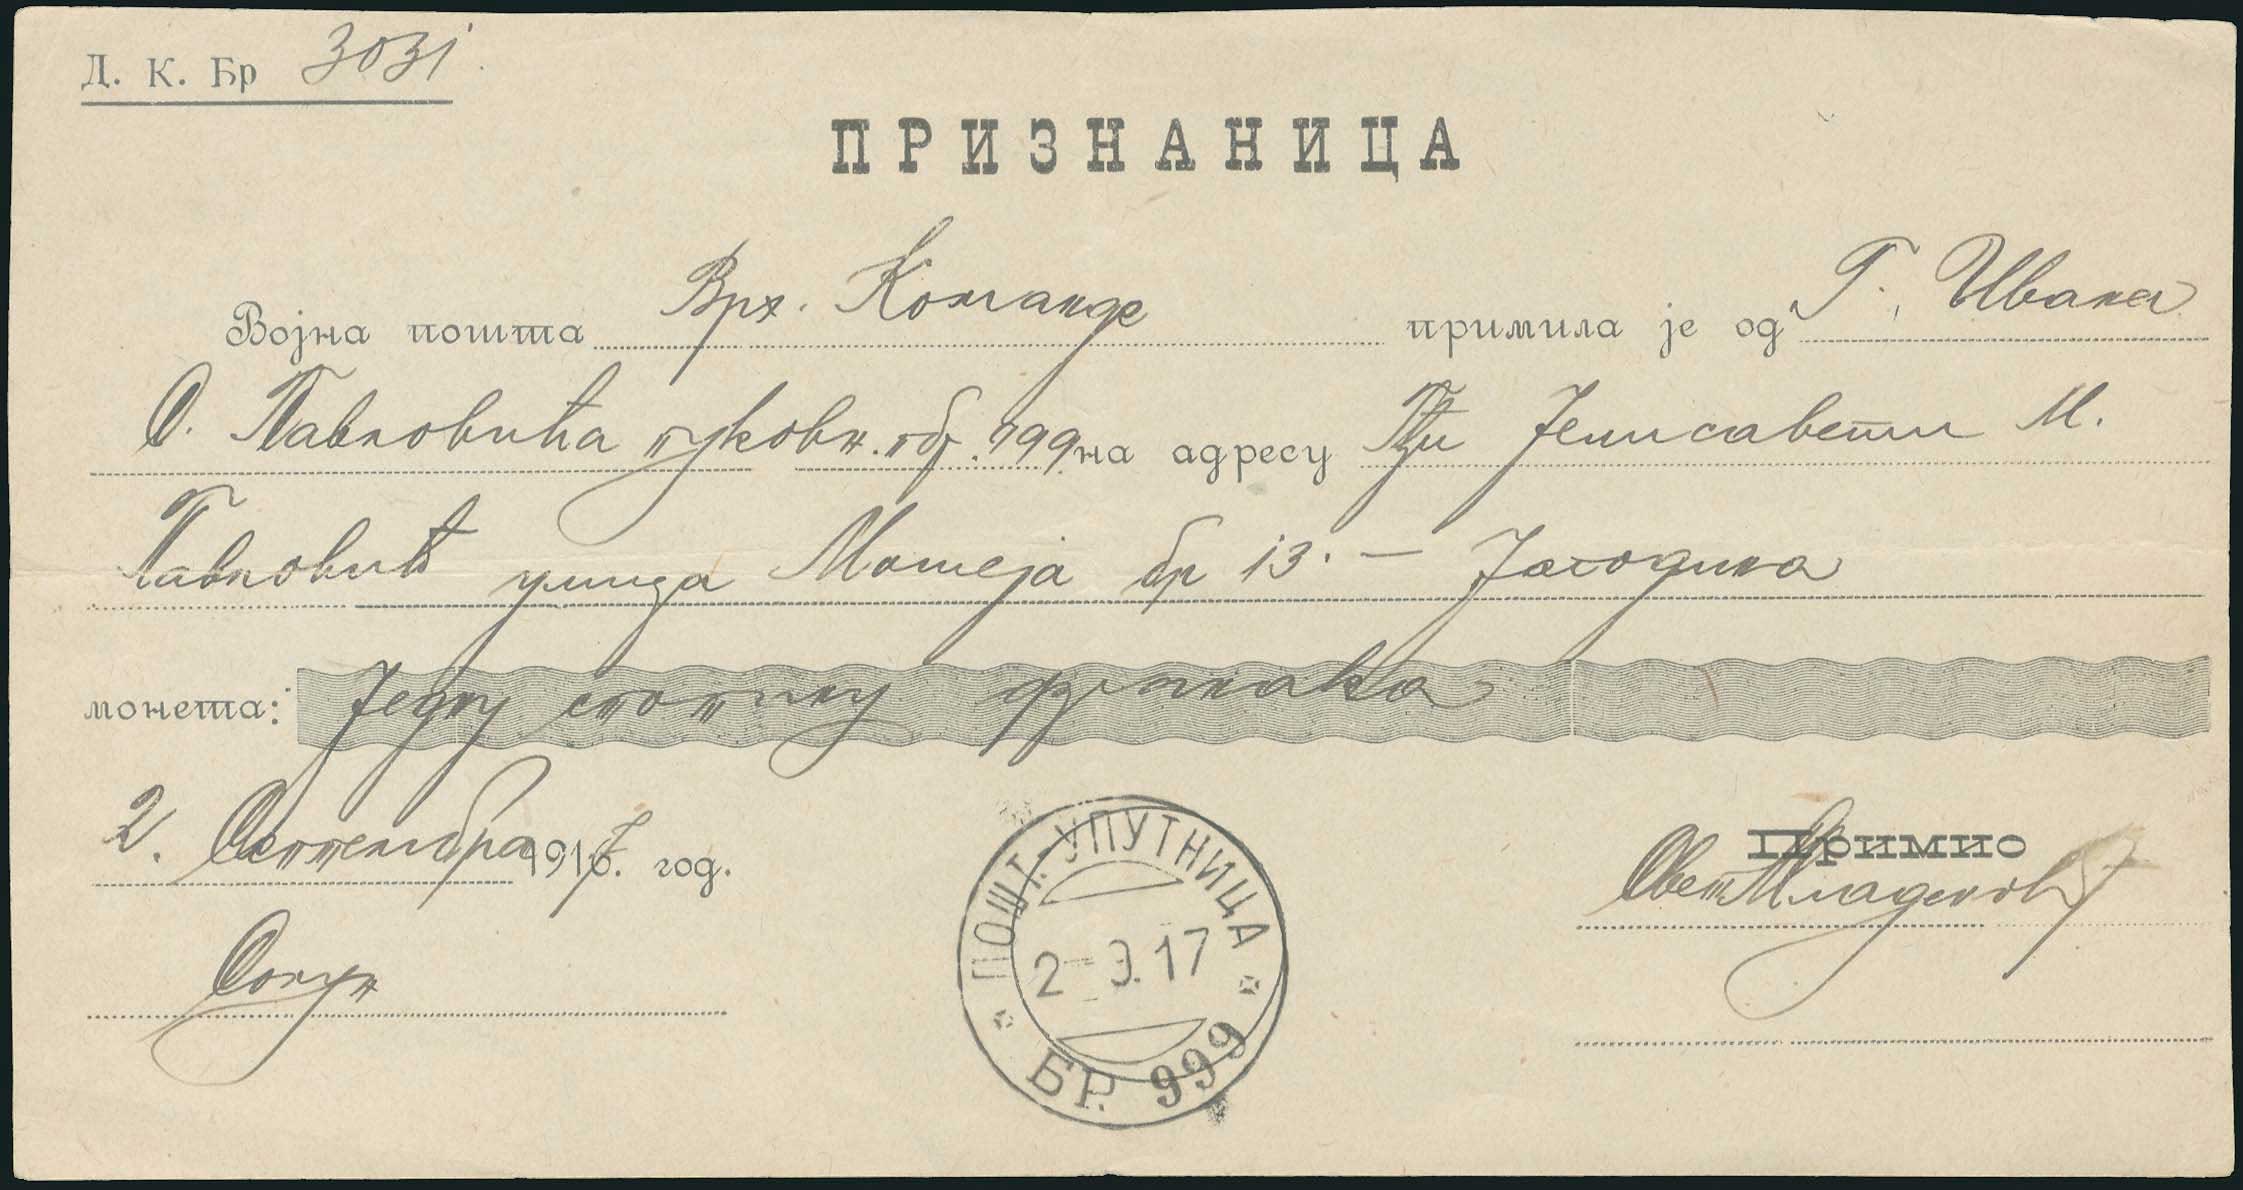 Д. К. Бр 3031.
ПРИЗНАНИЦА
Војна пошта Врх. Команде примила је од Г. Ивана
С. Павловића пуковн. пбр. 999 на адресу Гђи Јелисавети М.
Павловић улица Матеја бр 13. – Јагодина
монета: Једну стотину динара
2. Септембра 1917. год.
Примио
Свет Младенов
Солун
ПОШТ. УПУТНИЦА
2 - 9. 17
БР. 999